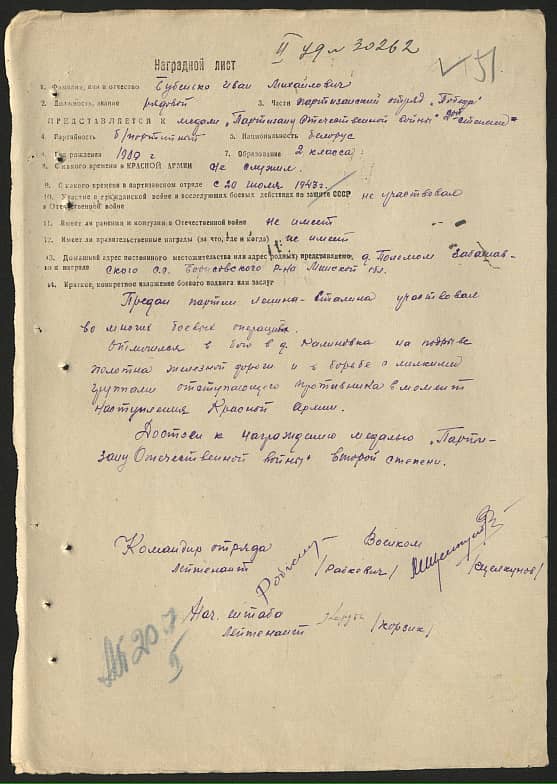 II удл 30262
51
Наградной лист
1. Фамилия, имя и отчество Бубенько Иван Михайлович
2. Должность, звание рядовой 3. Части партизанский отряд "Победа"
ПРЕДСТАВЛЯЕТСЯ К медали "Партизану Отечественной войны" 2ой степени
4. Партийность б/партийный 5. Национальность белорус
6. Год рождения 1909 г 7. Образование 2 класса
8. С какого времени в КРАСНОЙ АРМИИ не служил.
9. С какого времени в партизанском отряде с 20 июля 1943 г.
10. Участие в гражданской войне и последующих боевых действиях по защите СССР не участвовал
в Отечественной войне
11. Имеет ли ранения и контузии в Отечественной войне не имеет
12. Имеет ли правительственные награды (за что, где и когда) не имеет
13. Домашний адрес постоянного местожительства или адрес родных представляемого д.
к награде ского с.с. Борисовского р-на Минской обл.
14. Краткое, конкретное изложение боевого подвига или заслуг
Предан партии Ленина-Сталина участвовал
во многих боевых операциях.
Отличился в бою в д. Калиновка на подрыве
полотна железной дороги и в борьбе с мелкими
группами отступающего противника в момент
наступления Красной Армии.
Достоен к награждению медалью "Парти-
зану Отечественной войны" второй степени.
Командир отряда Военком
лейтенант /Рабкович/ /Щелкунов/
Нач. штаба
лейтенант /Корзик/